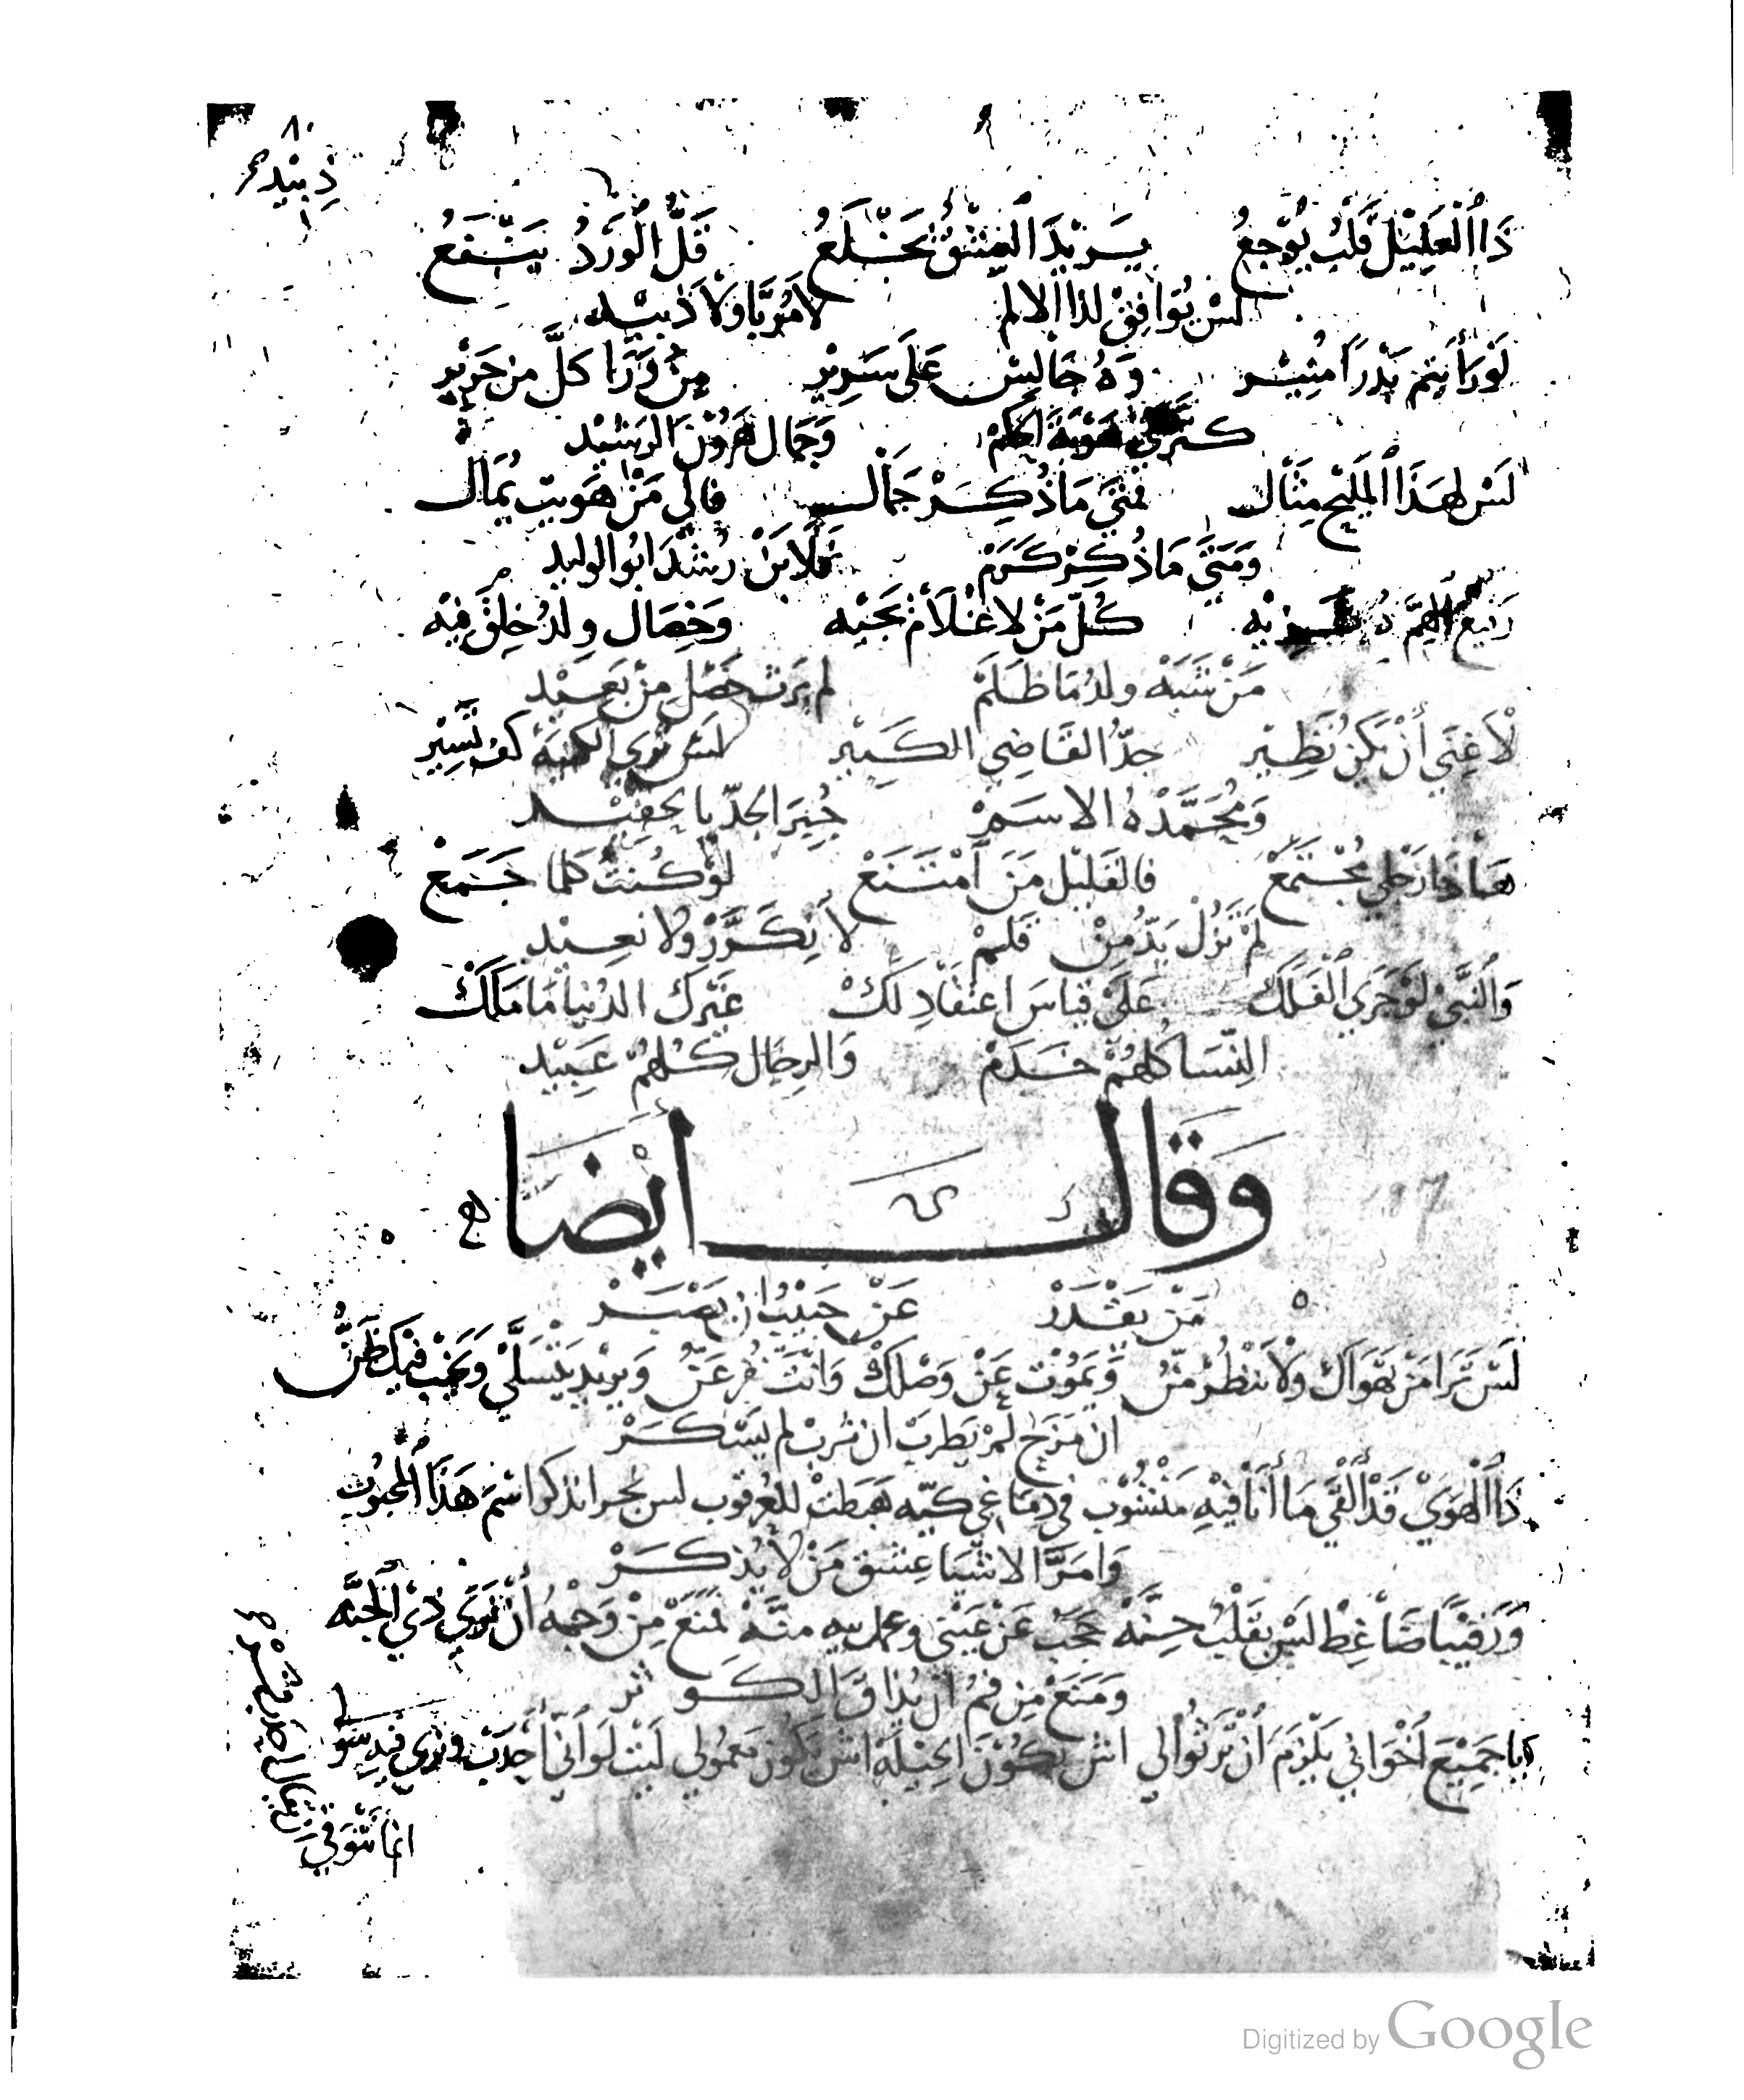 ٨٠
ذَا الْعَلِيْل قَلْبُ يُوْجعُ يَـرِيْدَ العِشْقُ يَخْـلَعُ قَلّ الْوَرَدْ يَنْـفَعُ
لسْ يُوَافِقْ لذا الالم لا مُرَبَّا ولا ذَبِيْـد
لَوْ رَأَيتم بَدْرًا مُنِيْـر وَهُ جَالِسْ عَلَى سَرِيْر مِنْ وَرَا كلَّ من حَرِيْر
كـسْرَى وَجَمَال هَرُوْن الرشيْد
لَسْ لِهَذَا المليْح مِثَال فمتَى مَا ذُكِـرْ جَمَال فالي مَنْ هَويت يُمَال
وَمَتَى مَا ذُكِـرْ كَرَمْ فَلابنْ رُشْدَ ابُو الوليد
رَفيع الهِمَّ كُلّ مَنْ لا غْـلاَمْ يَجيْه وَخِصَال ولدُ خلِقَ فِيْه
مَنْ شَبَه ولدُ مَا ظَـلَمْ لم يرث خَصْل مِنْ بَعـيْد
لاَ غِنَى أَنْ يَكن نَظِـيْر جدّ القَاضِي الكـبيْر لسْ ترى الكنيَة كفْ تَسِيْر
وَمُحَمَّدْ هُ الاسـمْ جُبِرَ الجدّ بالحفيْـد
هـا ذا زجلي مُجْـتَمَعْ فالقليْل مَنَ امْتَـنَعْ لوْ كُـنت كلما جَـمَعْ
لَمْ نَزُلْ يَدّ مِنْ قلمْ لا نكَـرَّرْ ولا نعـيْد
وَالنّبي لَوْ جَرَى الْفَـلَكْ عَلَى قياسَ اعتقاد لَكْ غيْرك الدُنيا مَا مَلَكْ
النِّسَا كلهُمْ خَـدَمْ وَالرِجَال كُـلهُمْ عَبِيْد
وَقَالَ أَيْضَا
مَنْ يَقْـدَرْ عَنْ حَبِيْبُ ان يَصْـبَـرْ
لَسْ تَرَا مَنْ يَهْوَاك وَلا يَنْظُرْ مِنُّ وَيَمُوْت عَنْ وَصْلكْ وَانَّتَ تفر عَنُّ وَيرِيْد يَتْسَلَّى وَيخيْب فيْك ظَنُّ
ان مَزَحْ لَمْ يَطرَبْ ان شرب لم يَسْكَـرْ
ذَا الْهَوَىْ قَدْ أَلْقَى مَا أَنَا فِيْهِ مَنْشُوْب في دمَاغي كيّه هَبَطتْ للعرقوب لس نجرا نذكر اسْمَ هَذَا الْمَحبُوب
وَامَرَّ الاشْيَا عِشق مَنْ لا يُذكَـرْ
وَرَقيْبًا ضَاغِطْ لَيْس بقلْبُ حِـنَّهْ حَجَبْ عَنْ عَيْنَى وعمل بيه منـَّهْ لمَنَعْ مِنْ وَجهُ أَنْ نرَى ذي الْجَنَّه
وَمَنَعْ مِن فمُ ان يُذاقَ الكَـوثر
يا جَمِيْعَ أخْوَاني يَلْزمَ أنْ تَرْثُوا لي اشْ تكُوْنَ الحِيْلَة اش يَكون مَعمُولي لَيْت لَو اني أجِدَت
انما نتْوقى